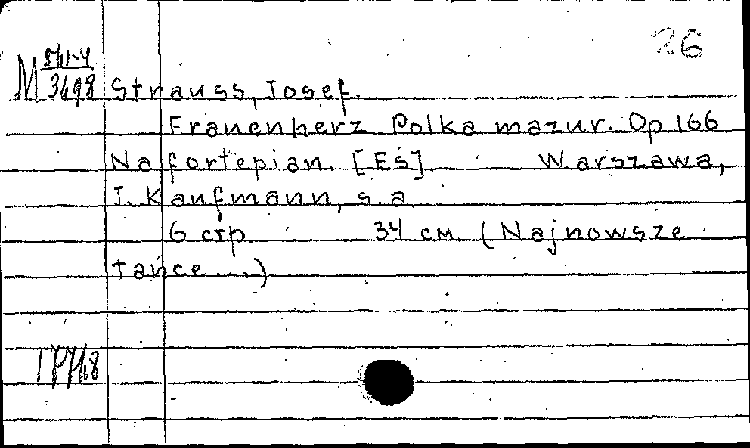 26
M 3698
Strauss, Josef.
Frauenherz Polka mazur. Op 166
Na fortepian. [Es] Warszawa,
I. Kaufmann, s.a
6 стр. 34 см. (Najnowsze
tańce ...)